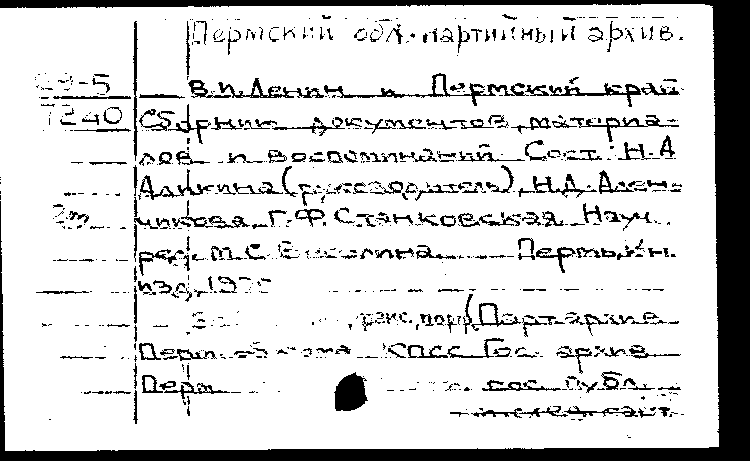 Пермский обл. партийный архив.
В.И.Ленин и Пермский край
7240 Сборник документов, материа-
лов и воспоминаний. Сост.: Н.А
Аликина (руководитель), Н.Д. Ален-
чикова, Г.Ф. Станковская. Науч.
ред. М.С. Пермь, Кн.
изд,
факс, порт. (Партархив
Перм. обкома КПСС Гос. архив
Перм сос. публ.